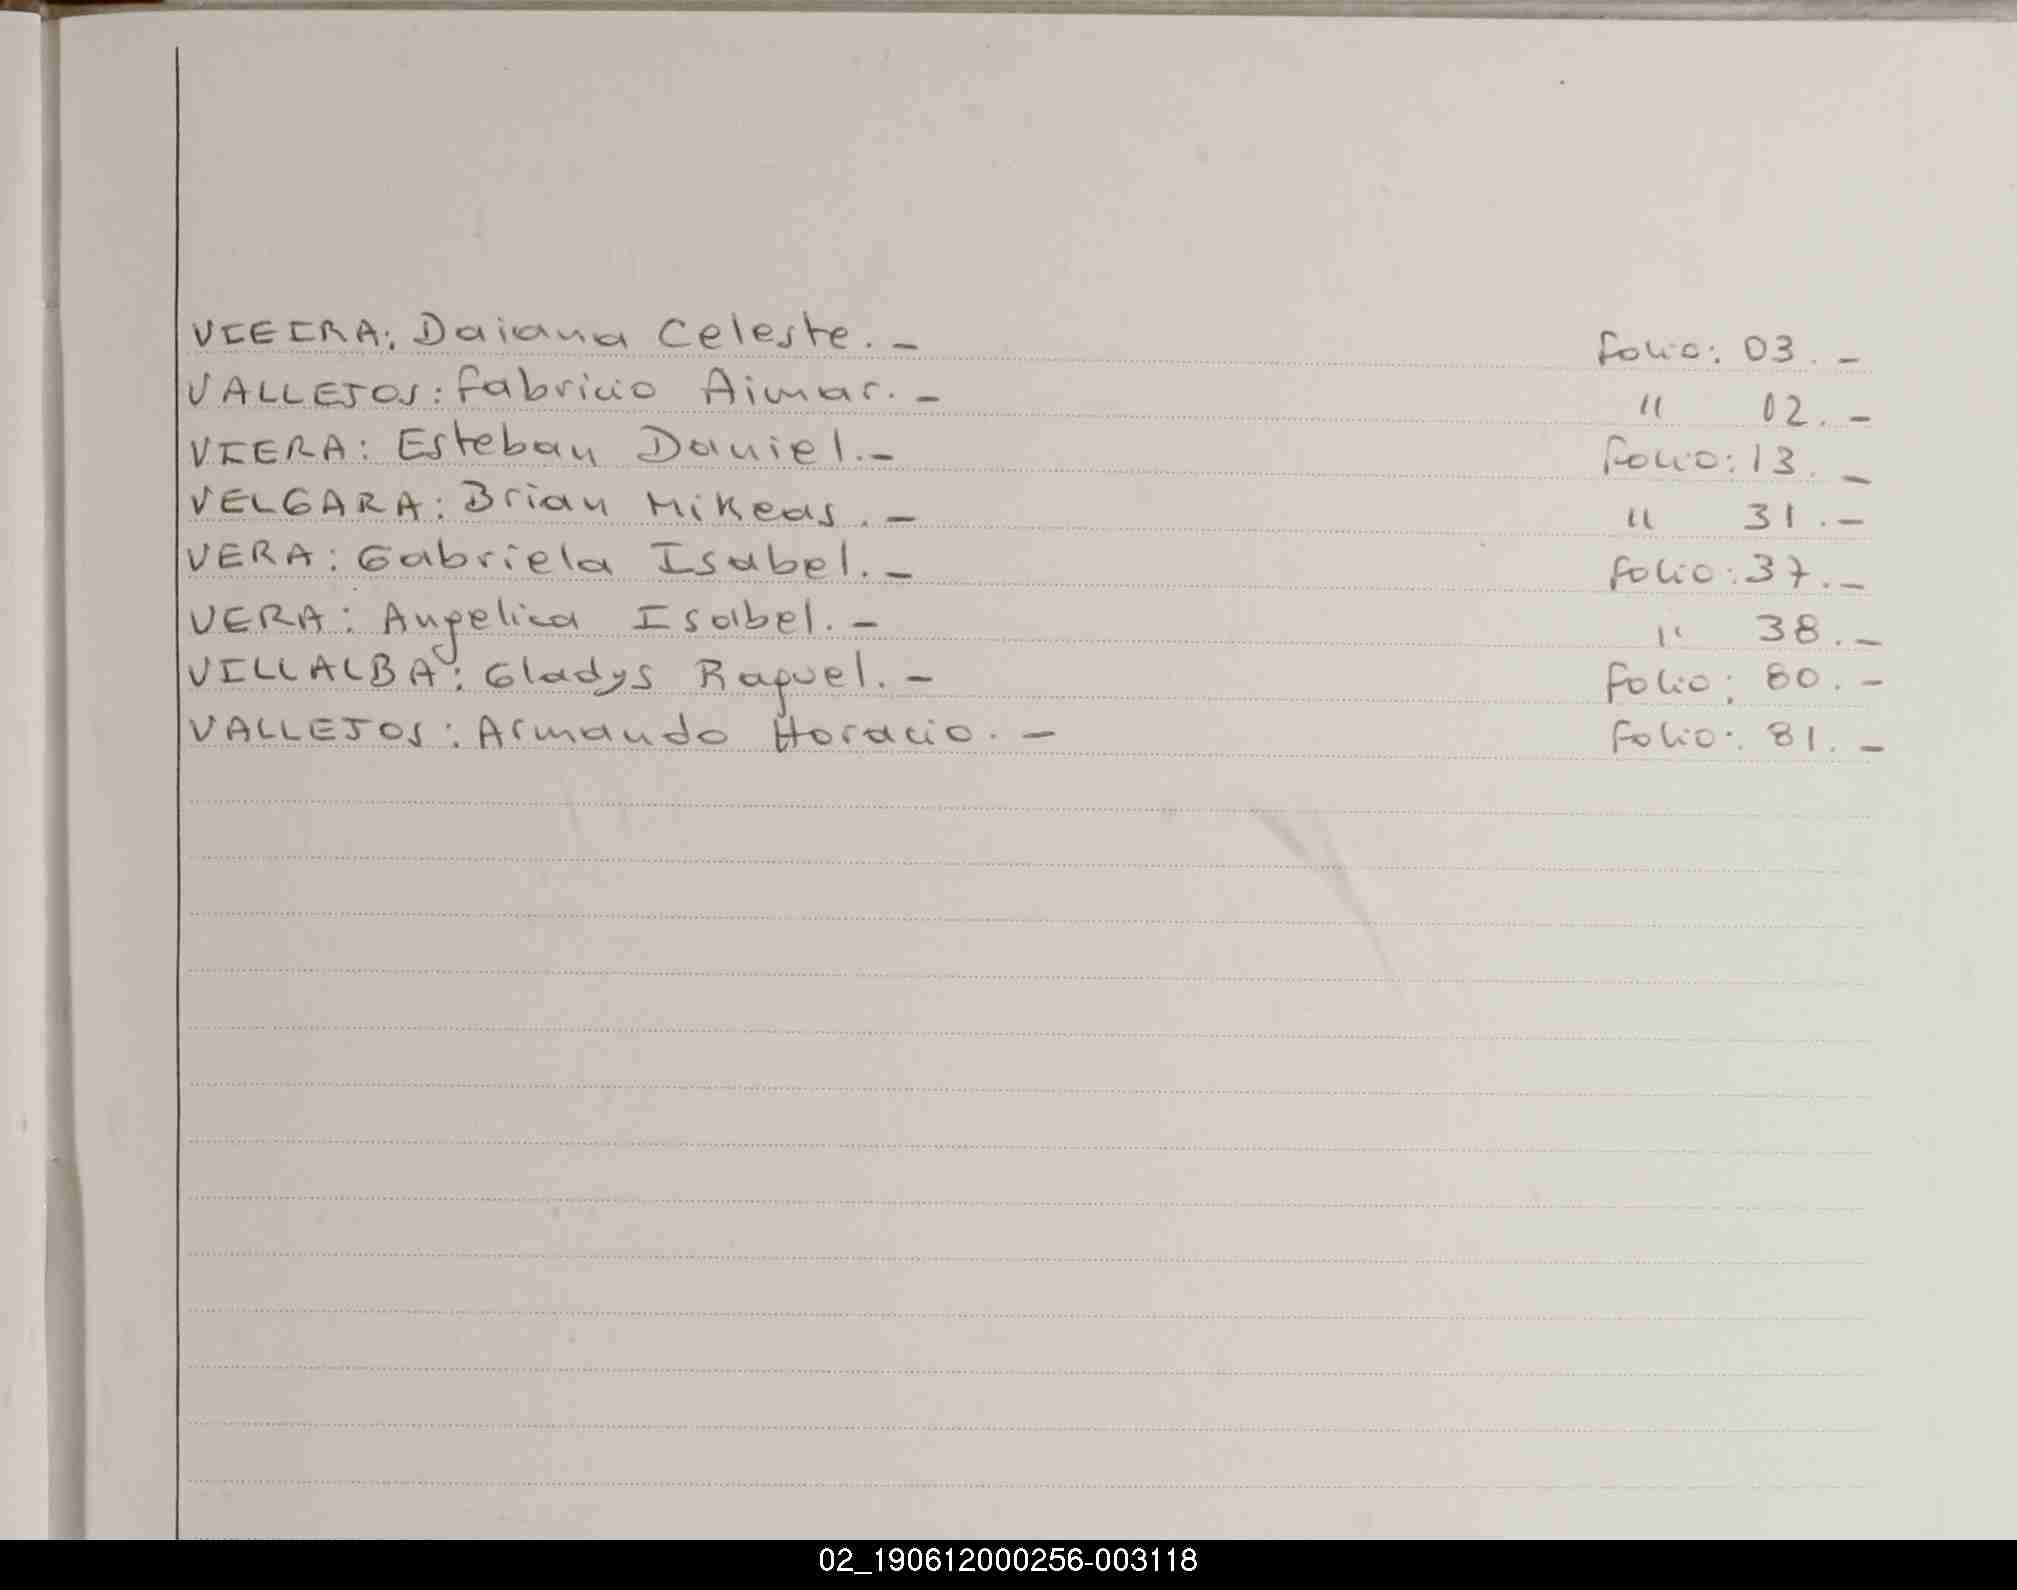 VIEIRA: Daiana Celeste.- folio: 03.-
VALLEJOS: Fabricio Aimar.- " 02.-
VIERA: Esteban Daniel.- Folio: 13.-
VELGARA: Brian Mikeas.- " 31.-
VERA: Gabriela Isabel.- folio: 37.-
VERA: Angelica Isabel.- " 38.-
VILLALBA: Gladys Raquel.- folio: 80.-
VALLEJOS: Armando Horacio.- folio: 81.-
02_190612000256-003118